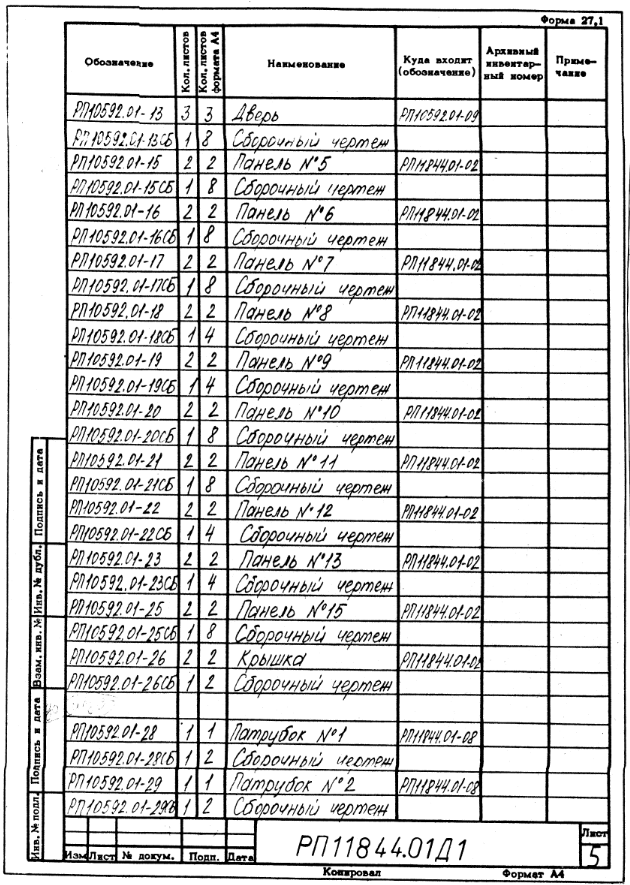 Форма 27,1
Обозначение Кол. листов Кол. листов формата А4 Наименование Куда входит (обозначение) Архивный инвентар-ный номер Приме-чание
РП10592.01-13 3 3 Дверь РП10592.01-09
РП10592.01-13СБ 1 8 Сборочный чертеж
РП10592.01-15 2 2 Панель №5 РП11844.01-02
РП10592.01-15СБ 1 8 Сборочный чертеж
РП10592.01-16 2 2 Панель №6 РП11844.01-02
РП10592.01-16СБ 1 8 Сборочный чертеж
РП10592.01-17 2 2 Панель №7 РП11844.01-02
РП10592.01-17СБ 1 8 Сборочный чертеж
РП10592.01-18 2 2 Панель №8 РП11844.01-02
РП10592.01-18СБ 1 4 Сборочный чертеж
РП10592.01-19 2 2 Панель №9 РП11844.01-02
РП10592.01-19СБ 1 4 Сборочный чертеж
РП10592.01-20 2 2 Панель №10 РП11844.01-02
РП10592.01-20СБ 1 8 Сборочный чертеж
РП10592.01-21 2 2 Панель №11 РП11844.01-02
РП10592.01-21СБ 1 8 Сборочный чертеж
РП10592.01-22 2 2 Панель №12 РП11844.01-02
РП10592.01-22СБ 1 4 Сборочный чертеж
РП10592.01-23 2 2 Панель №13 РП11844.01-02
РП10592.01-23СБ 1 4 Сборочный чертеж
РП10592.01-25 2 2 Панель №15 РП11844.01-02
РП10592.01-25СБ 1 8 Сборочный чертеж
РП10592.01-26 2 2 Крышка РП11844.01-02
РП10592.01-26СБ 1 2 Сборочный чертеж
РП10592.01-28 1 1 Патрубок №1 РП11844.01-08
РП10592.01-28СБ 1 2 Сборочный чертеж
РП10592.01-29 1 1 Патрубок №2 РП11844.01-08
РП10592.01-29СБ 1 2 Сборочный чертеж
Подпись и дата
Инв. № дубл.
Взам. инв. №
Подпись и дата
Инв. № подл.
Изм Лист № докум. Подп. Дата
РП11844.01Д1
Лист
5
Копировал Формат А4